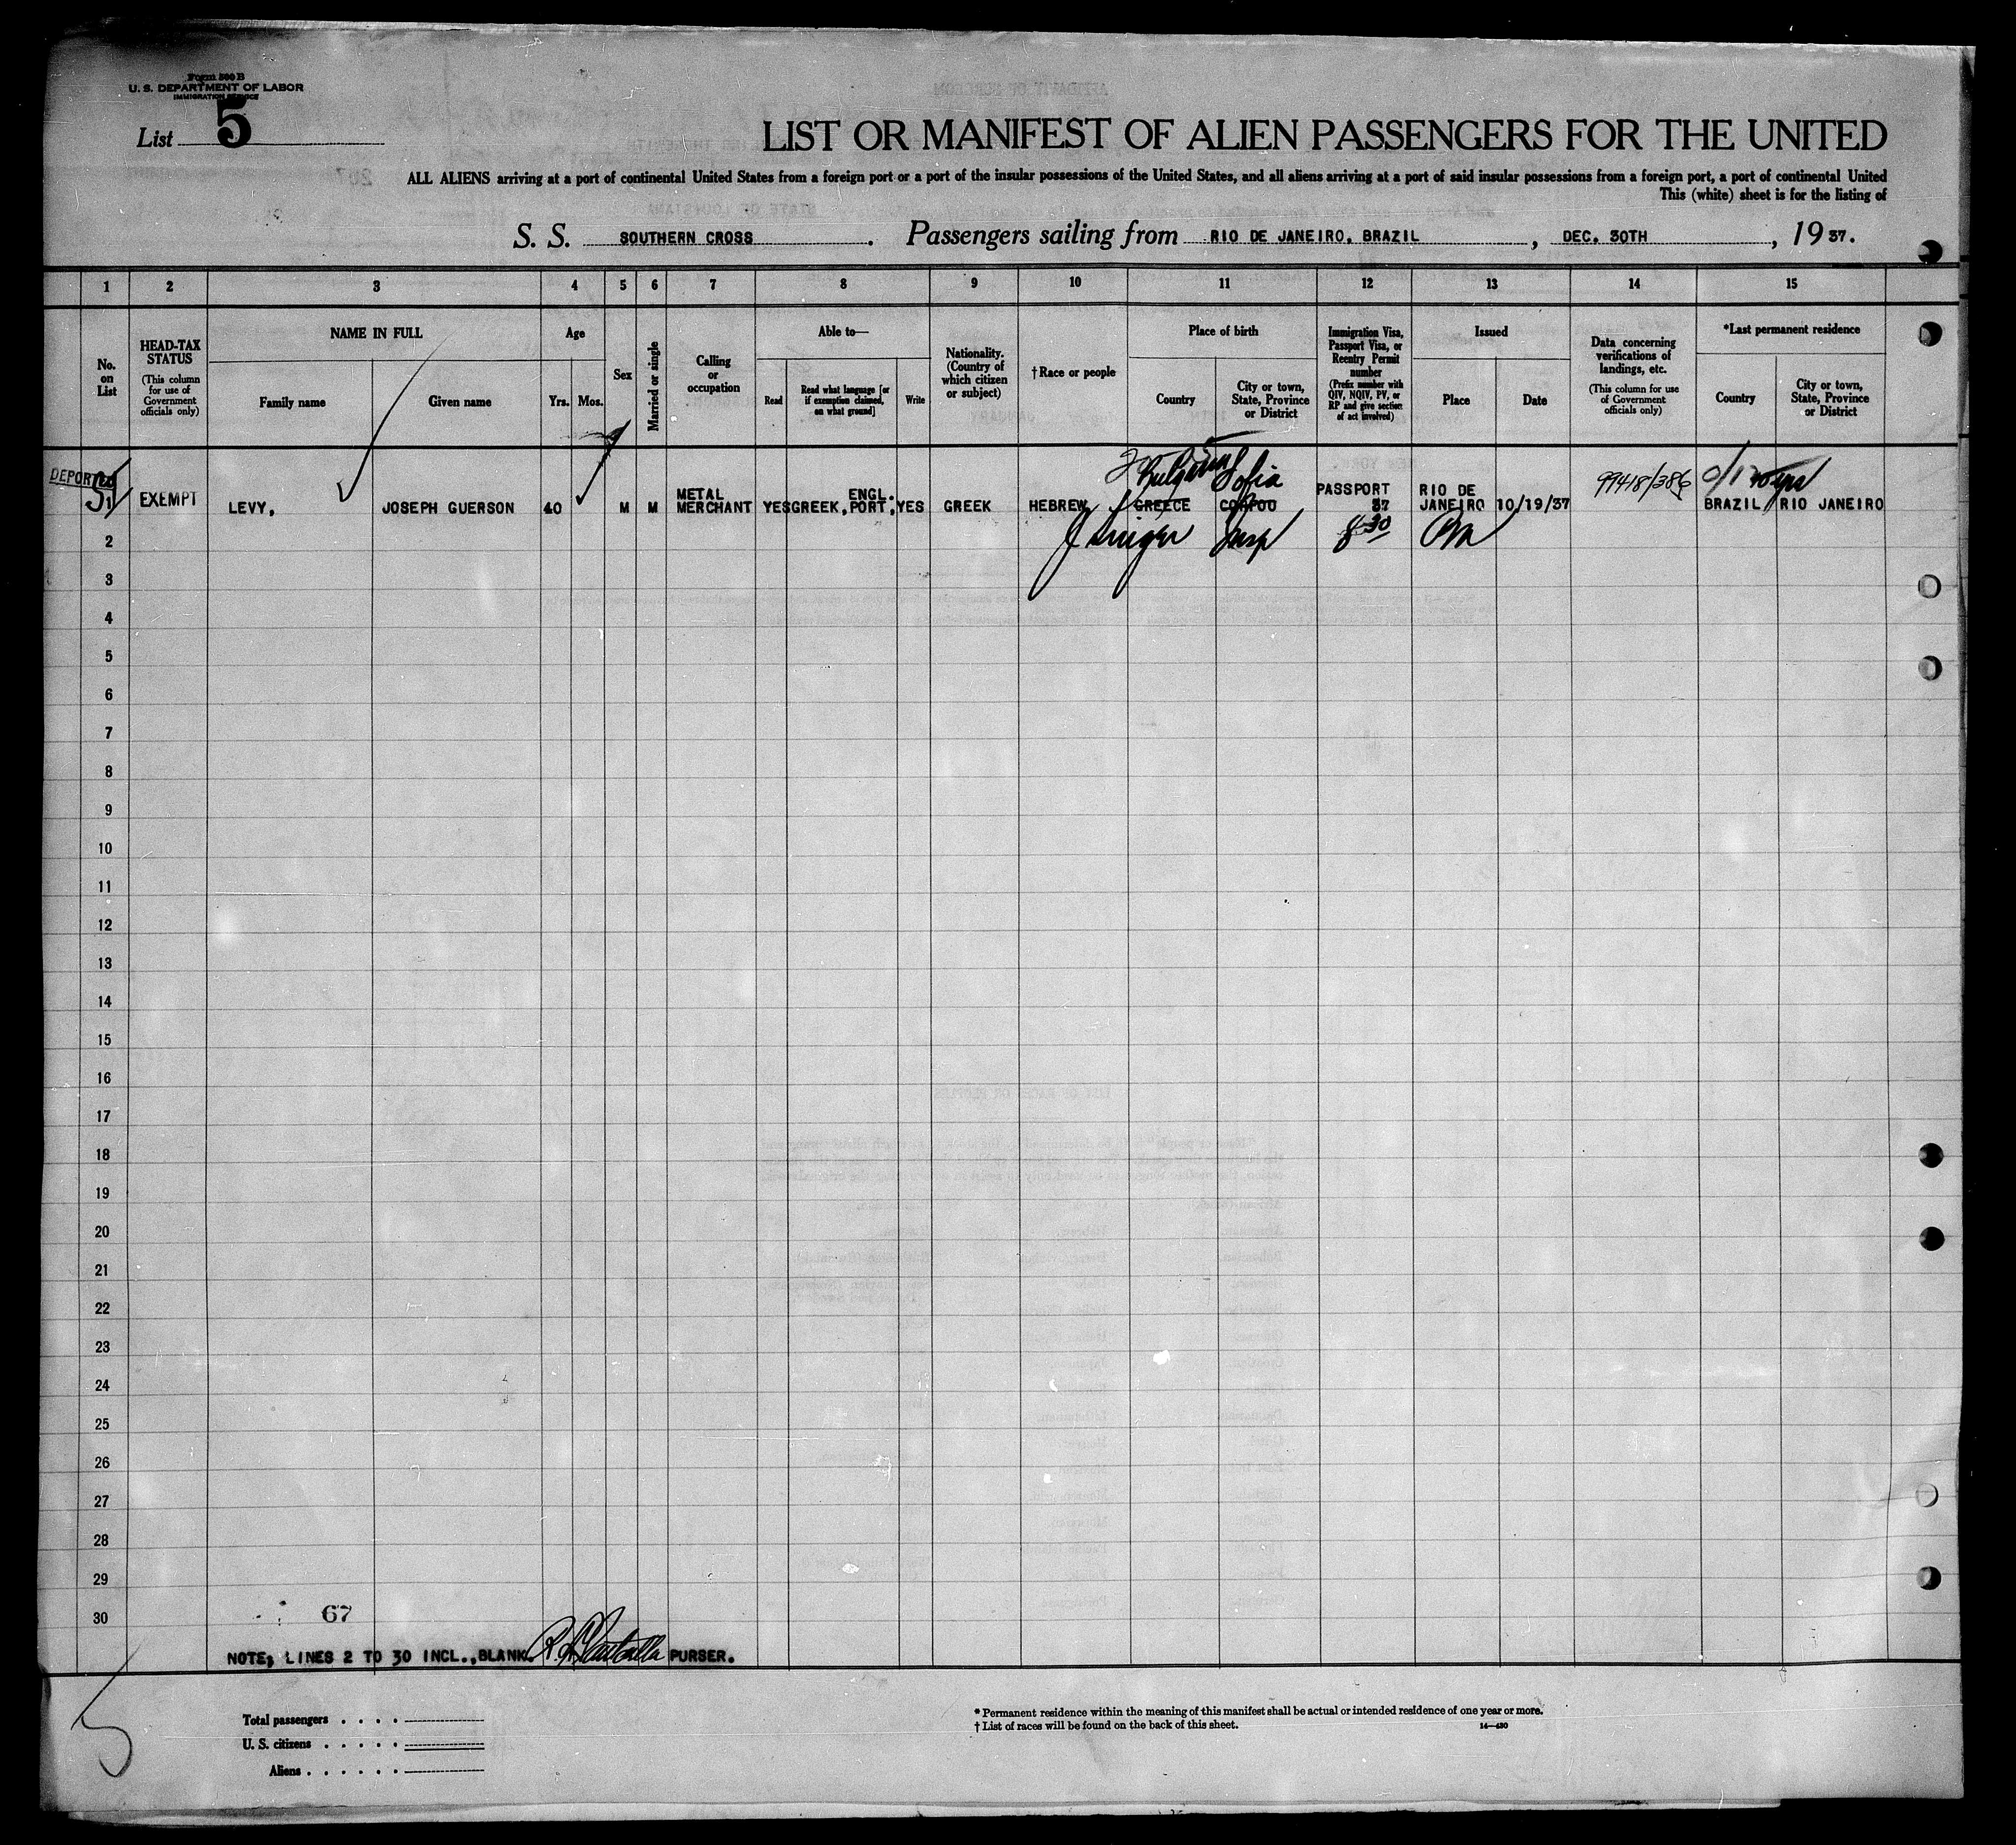 Form 500 B
U. S. DEPARTMENT OF LABOR
IMMIGRATION SERVICE
List 5
LIST OR MANIFEST OF ALIEN PASSENGERS FOR THE UNITED
ALL ALIENS arriving at a port of continental United States from a foreign port or a port of the insular possessions of the United States, and all aliens arriving at a port of said insular possessions from a foreign port, a port of continental United
This (white) sheet is for the listing of
S. S. SOUTHERN CROSS. Passengers sailing from RIO DE JANEIRO, BRAZIL, DEC. 30TH, 1937.
1 2 3 4 5 6 7 8 9 10 11 12 13 14 15
No. on List
HEAD-TAX STATUS
(This column for use of Government officials only)
NAME IN FULL
Family name
Given name
Age
Yrs. Mos.
Sex
Married or single
Calling or occupation
Able to—
Read
Read what language [or if exemption claimed, on what ground]
Write
Nationality. (Country of which citizen or subject)
†Race or people
Place of birth
Country
City or town, State, Province or District
Immigration Visa, Passport Visa, or Reentry Permit number
(Prefix number with QIV, NQIV, PV, or RP and give section of act involved)
Issued
Place
Date
Data concerning verifications of landings, etc.
(This column for use of Government officials only)
*Last permanent residence
Country
City or town, State, Province or District
DEPORTED
Bulgaria Sofia
99418/386
1 EXEMPT LEVY, JOSEPH GUERSON 40 M M METAL MERCHANT YES GREEK, ENGL. PORT, YES GREEK HEBREW GREECE CORFOU PASSPORT 37 RIO DE JANEIRO 10/19/37 BRAZIL RIO JANEIRO
Insp 8 30
2
3
4
5
6
7
8
9
10
11
12
13
14
15
16
17
18
19
20
21
22
23
24
25
26
27
28
29
30 67
NOTE; LINES 2 TO 30 INCL., BLANK. PURSER.
5
Total passengers . . . .
U. S. citizens . . . . .
Aliens . . . . . .
* Permanent residence within the meaning of this manifest shall be actual or intended residence of one year or more.
† List of races will be found on the back of this sheet.
14—430